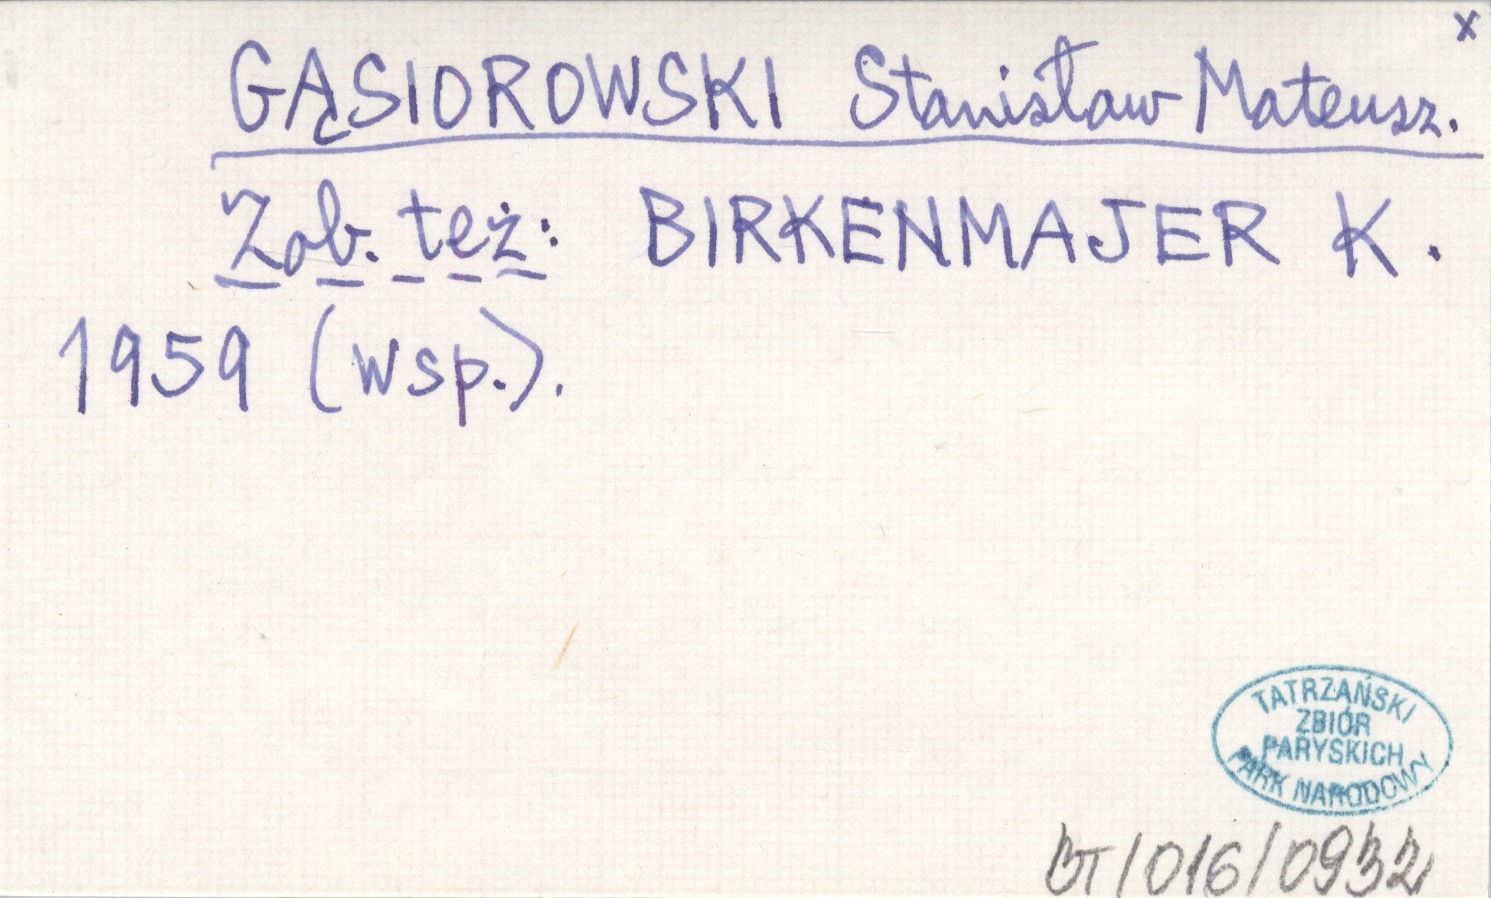 x
GĄSIOROWSKI Stanisław Mateusz.
Zob. też: BIRKENMAJER K.
1959 (wsp.).
TATRZAŃSKI
ZBIÓR
PARYSKICH
PARK NARODOWY
BT/016/0932